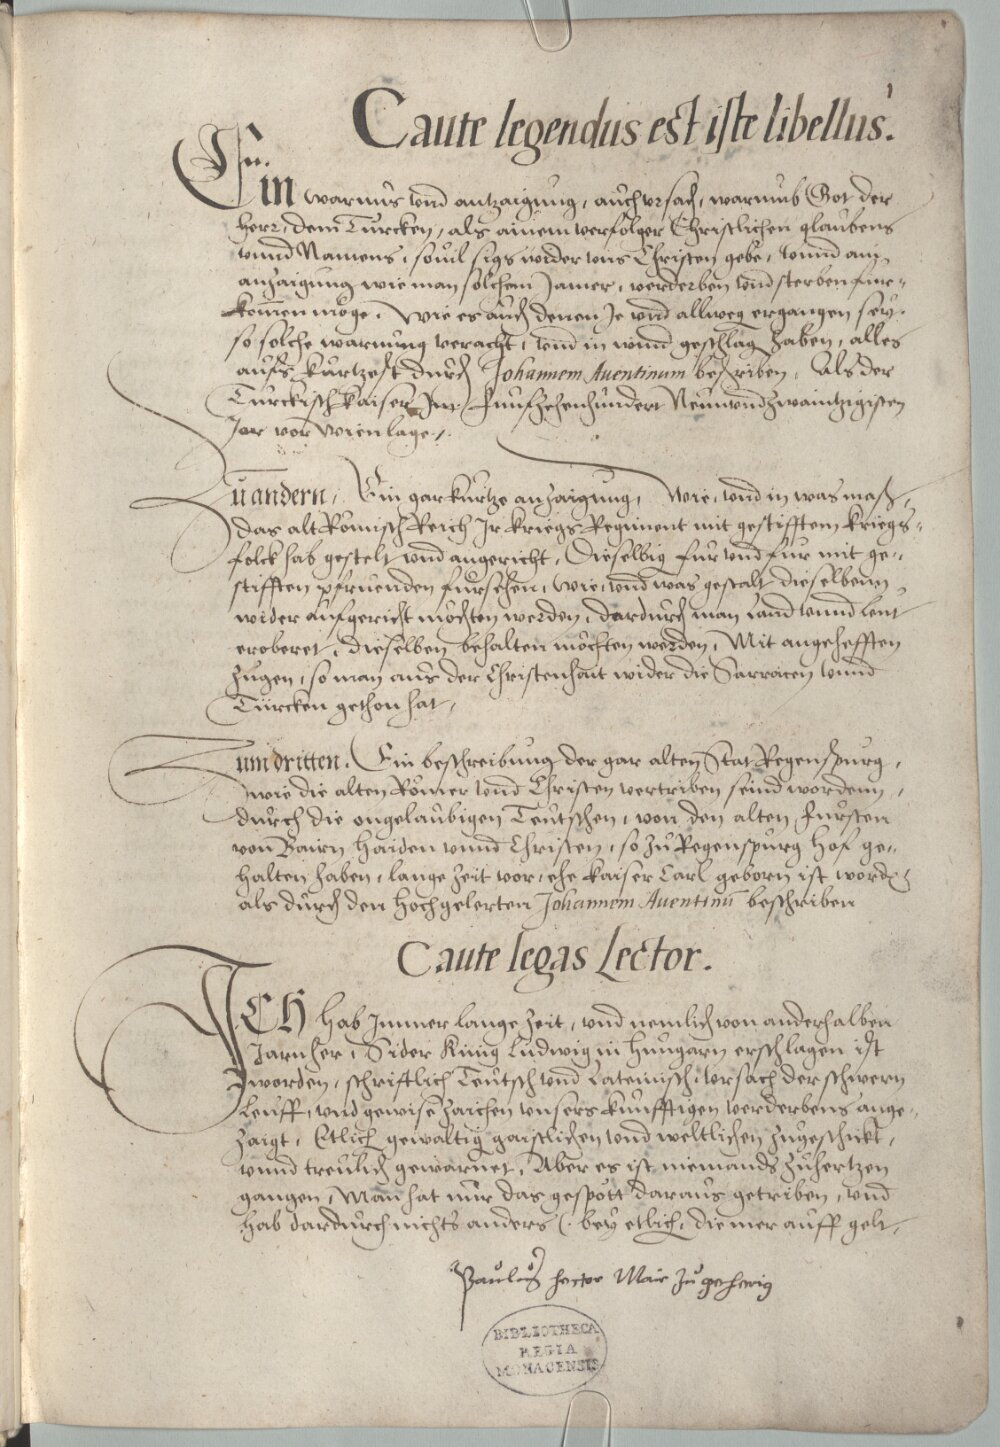 Caute legendus est iste libellus.
Ein warnus vnd antzaigung, auch vrsach, warumb Got der
herr, dem Türcken, als ainem verfolger Christlichen glaubens
vnnd Namens, souil sigs wider vns Christen gebe, vnnd ain
anzaigung wie man solchem Jamer, verderben vnd sterben für-
kom̅en möge. Wie es auch denen Je vnd allweg ergangen sey.
so solche warnung veracht, vnd in wind geschlag haben, alles
aufs kurtzest durch Johannem Auentinum beschriben. Als der
Türckisch kaiser Im Funfzehenhundert Neunvndzwaintzigisten
Jar vor Wien lage.
Zu andern, Ein gar kurtze anzaigung, Wie, vnd in was maß,
das alt Römisch Reich Ir kriegs Regiment mit gestifftem kriegs-
folck hab gestelt vnd angericht, Dieselbig für vnd für mit ge-
stifften pfruenden fürsehen, Wie, vnd was gestalt dieselbenn
wider aufgericht möchten werden, dardurch man Land vnnd Leut
eroberet, dieselben behalten möchten werden, Mit angehefften
Zügen, so man aus der Christenhait wider die Sarracen vnnd
Türcken gethon hat,
Zum dritten. Ein beschreibung der gar alten Stat Regenspurg,
wie die alten Römer vnd Christen vertriben seind wordenn,
durch die ongelaubigen Teutschen, von den alten Fürsten
von Bairn Haiden vnnd Christen, so zu Regenspurg Hof ge-
halten haben, lange zeit vor, ehe kaiser Carl geborn ist word
als durch den hochgelerten Johannem Auentinu̅ beschriben
Caute legas Lector.
ICH hab Immer lange zeit, vnd nemlich von anderhalben
Jarn her, Sider Künig Ludwig in Hungarn erschlagen ist
worden, schriftlich Teutsch vnd Lateinisch, vrsach der schwern
Leuff, vnd gewise zaichen vnsers kunfftigen verderbens ange-
zaigt, Etlich gewaltig gaistlichen vnd weltlichen zugeschickt,
vnnd treulich gewarnet, Aber es ist niemands zu hertzen
gangen, Man hat nur das gespött daraus getriben, vnd
hab dardurch nichts anders (bey etlich, die mer auff gelt,
Paulus hector Mair zugeherig
BIBLIOTHECA
REGIA
MONACENSIS